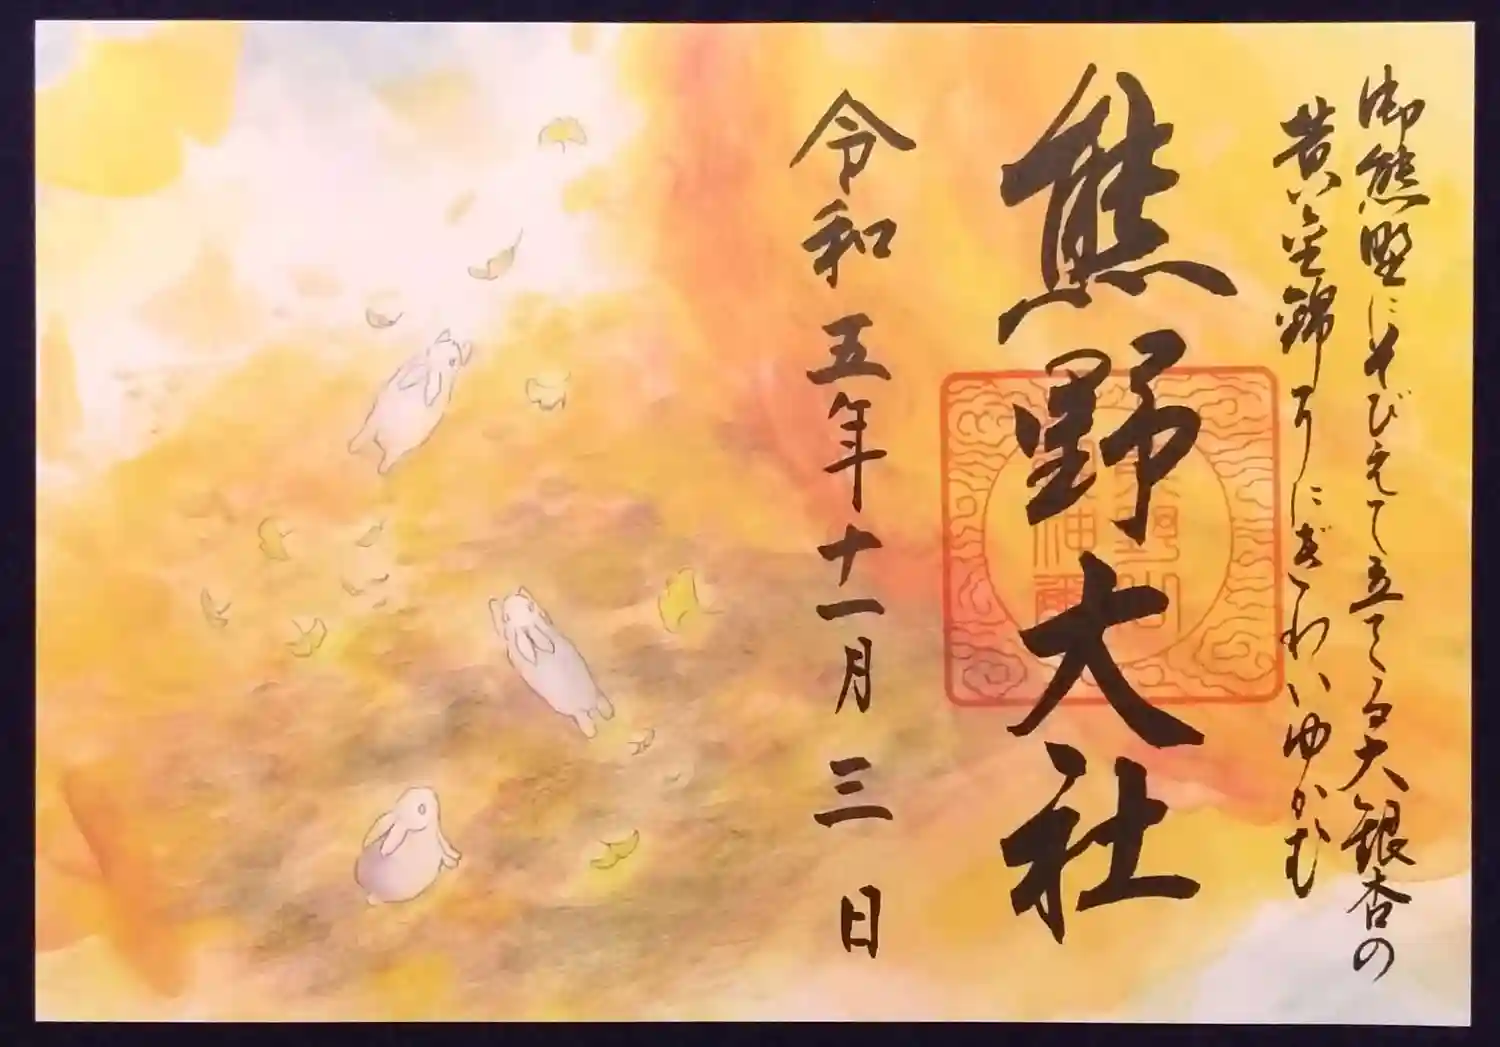 御熊野にそびえて立てる大銀杏の
黄金錦のにぎわいゆかむ
熊野大社
令和五年十一月三日